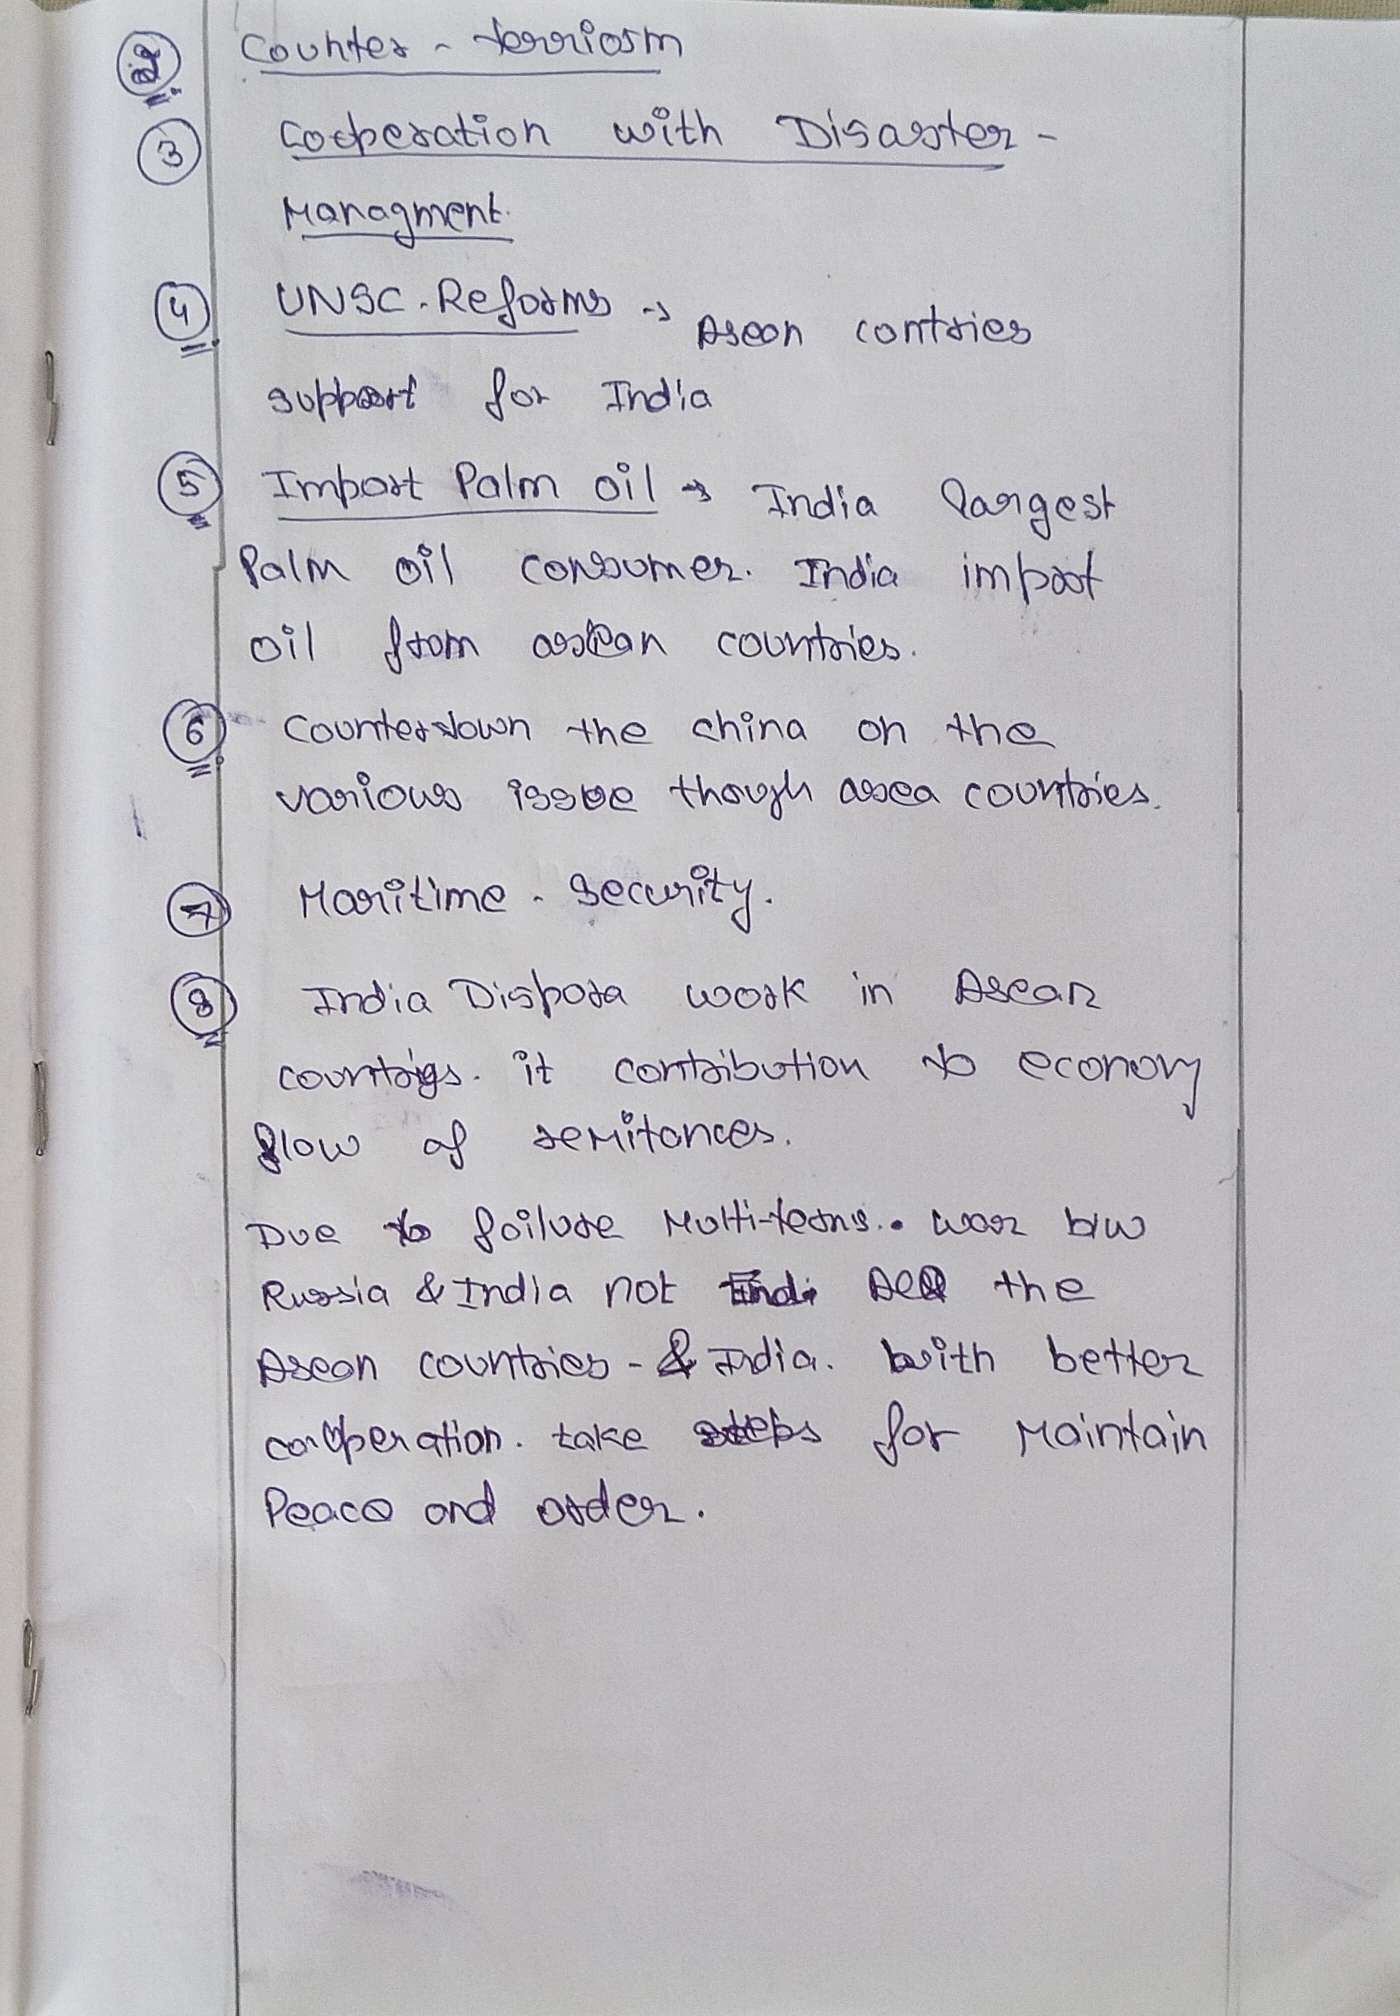 ② Counter - terriosm
③ Cooperation with Disaster -
Managment.
④ UNSC - Reforms → Asean contries
support for India
⑤ Import Palm oil → India largest
Palm oil consumer. India import
oil from asean countries.
⑥ Counterdown the china on the
various issue though asea countries.
⑦ Maritime - security.
⑧ India Dispora work in Asean
countries. it contribution to economy
flow of remitances.
Due to failure Multi- .. war b/w
Russia & India not the
Asean countries - & India. with better
cooperation. take steps for Maintain
Peace and order.